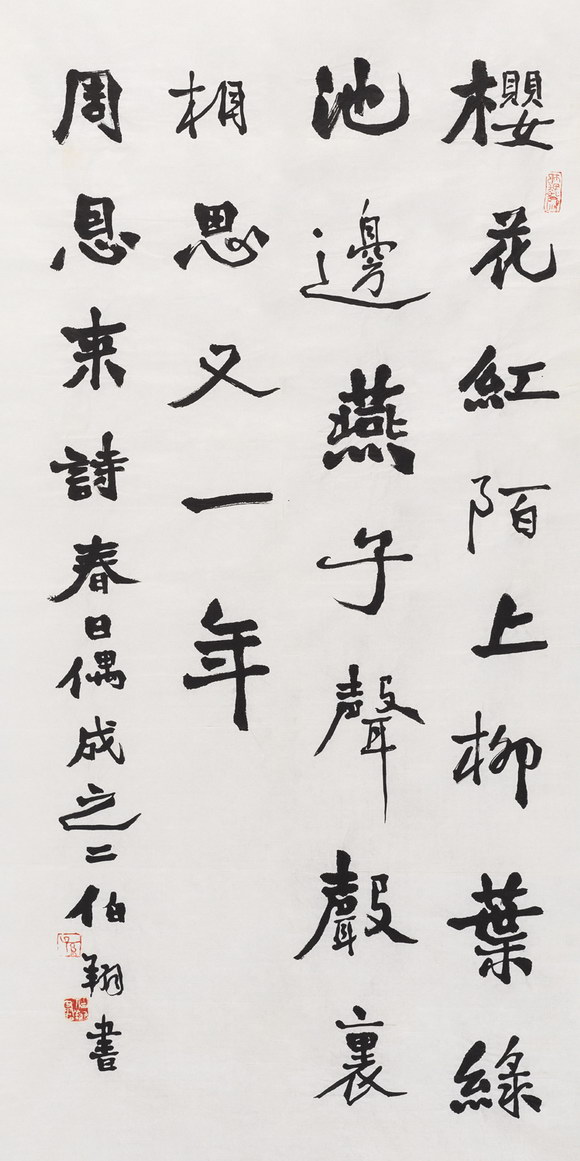 櫻花紅陌上柳葉綠
池邊燕子聲聲裏
相思又一年
周恩来詩春日偶成之二伯翔書